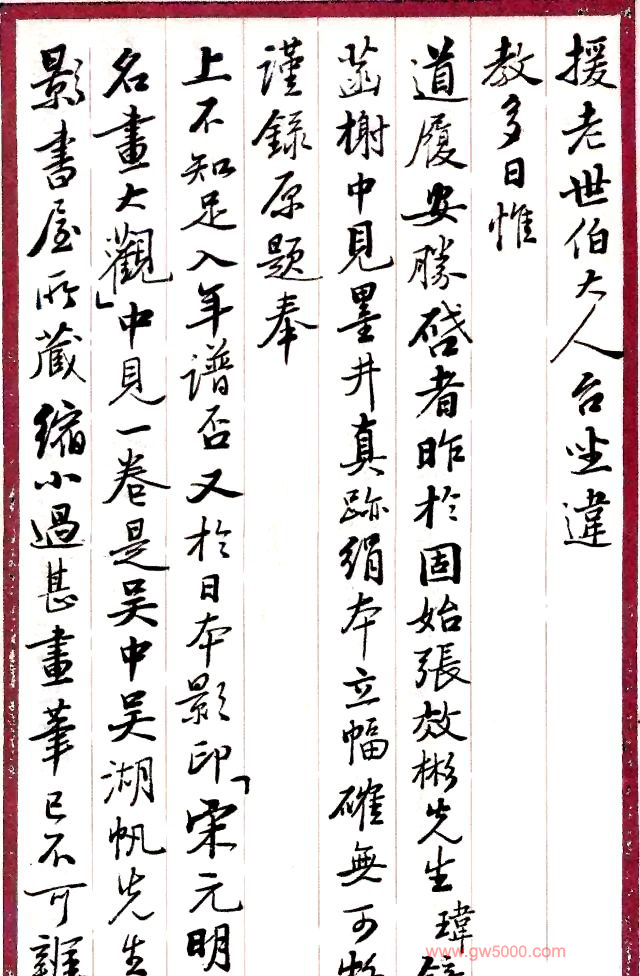 援老世伯大人台坐違
教多日惟
道履安勝啓者昨於固始張效彬先生瑋
菡榭中見墨井真跡絹本立幅確無可
謹錄原題奉
上不知足入年譜否又於日本影印「宋元明
名畫大觀」中見一卷是吴中吴湖帆先生
影書屋所藏縮小過甚畫筆已不可
www.gw5000.com